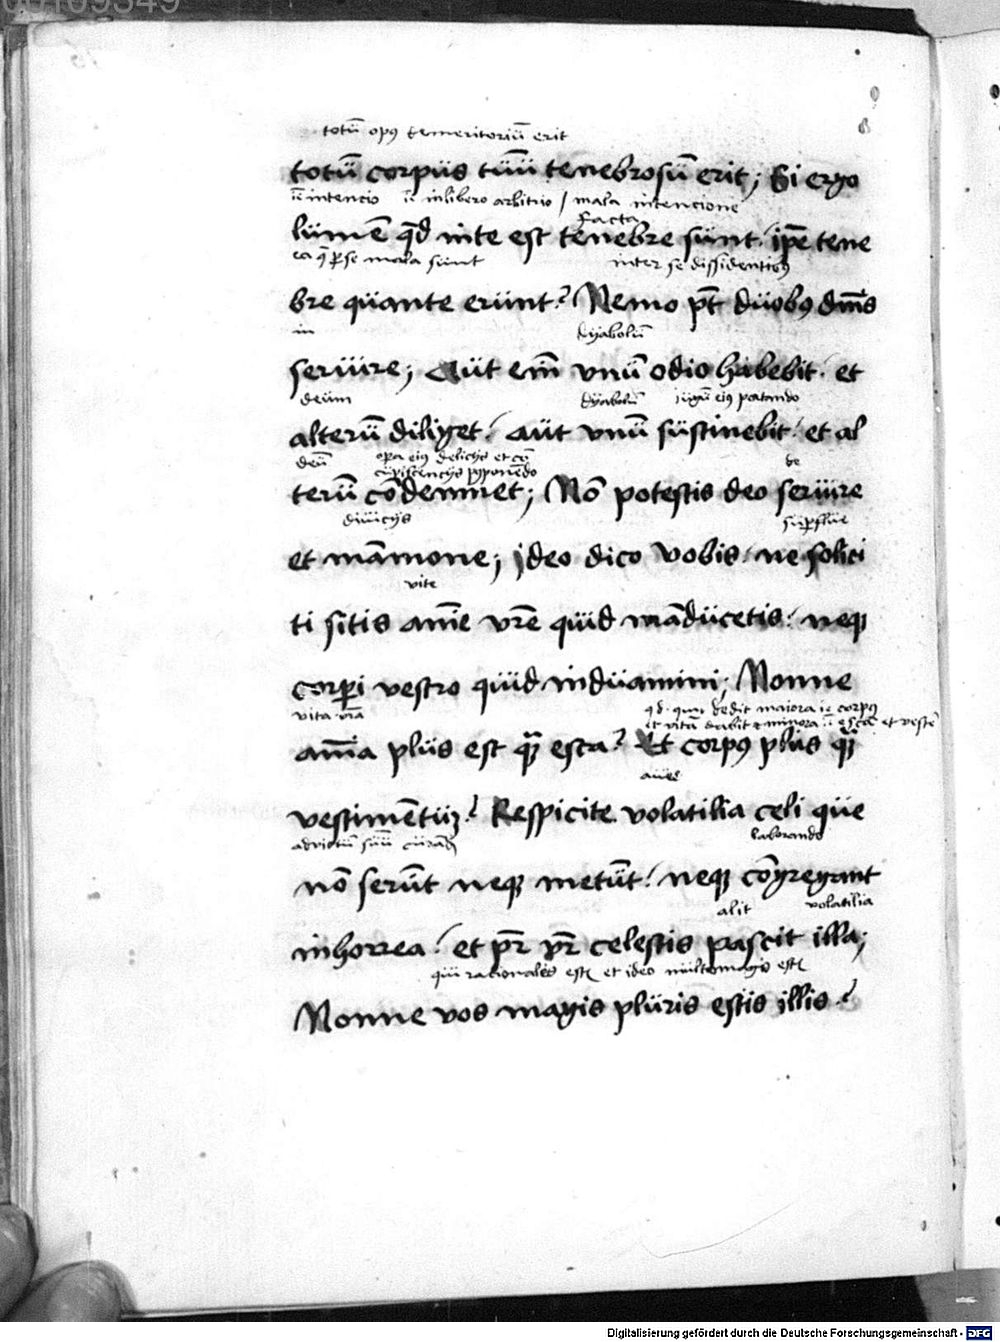 00109349
totū opꝯ demeritoriū erit
totū corpus tuū tenebrosū erit; Si ergo
intencio in libero arbitrio / mala intencione
facta
lumē qd̄ inte est tenebre sunt / ip̄e tene
ea q̄ ꝑ se mala sunt inter se dissidentibꝯ
bre quante erunt? Nemo pt̄ duobꝯ dm̄s
in dyabolū
seruire; Aut em̄ vnū odio habebit / et
deum dyabolū iugū eiꝯ portando
alterū diliget / aut vnū sustinebit / et al
deū opa eiꝯ delicijs et
terū cōdemnet; Nō potestis deo seruire
diuicijs suꝑflue
et māmone; jdeo dico vobis / ne solici
vite
ti sitis aīe vr̄e quid māducetis / neqꝫ
corꝑi vestro quid induamini; Nonne
vita vr̄a qd. qui dedit maiora corpꝯ
et vitā dabit minora escā et vestē
aīa plus est qm̄ esca? Et corpꝯ plus qm̄
aues
vestimētuꝫ? Respicite volatilia celi que
advictū suū laborando
nō serūt neqꝫ metūt / neqꝫ cōgregant
alit volatilia
inhorrea / et pr̄ vr̄ celestis pascit illa;
qui racionales estis et ideo multomagis estis
Nonne vos magis pluris estis illis?
Digitalisierung gefördert durch die Deutsche Forschungsgemeinschaft - DFG